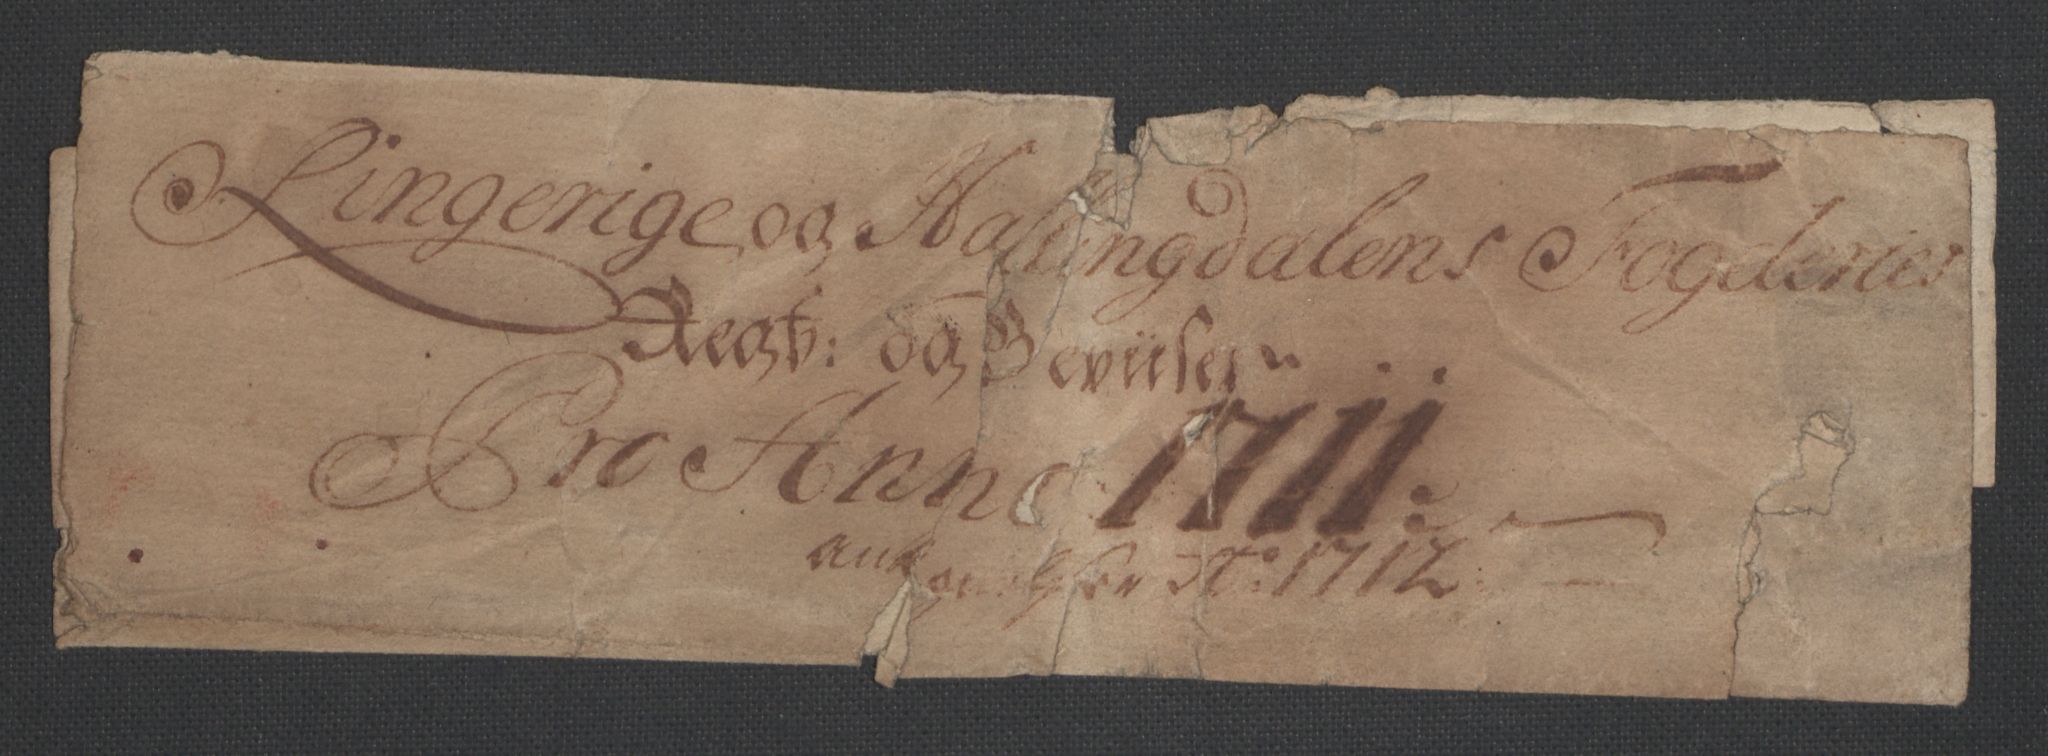 Ringerige og Hallingdalens Fogderies
Regb: og Beviiser
Pro Anno 1711.
No: 1712